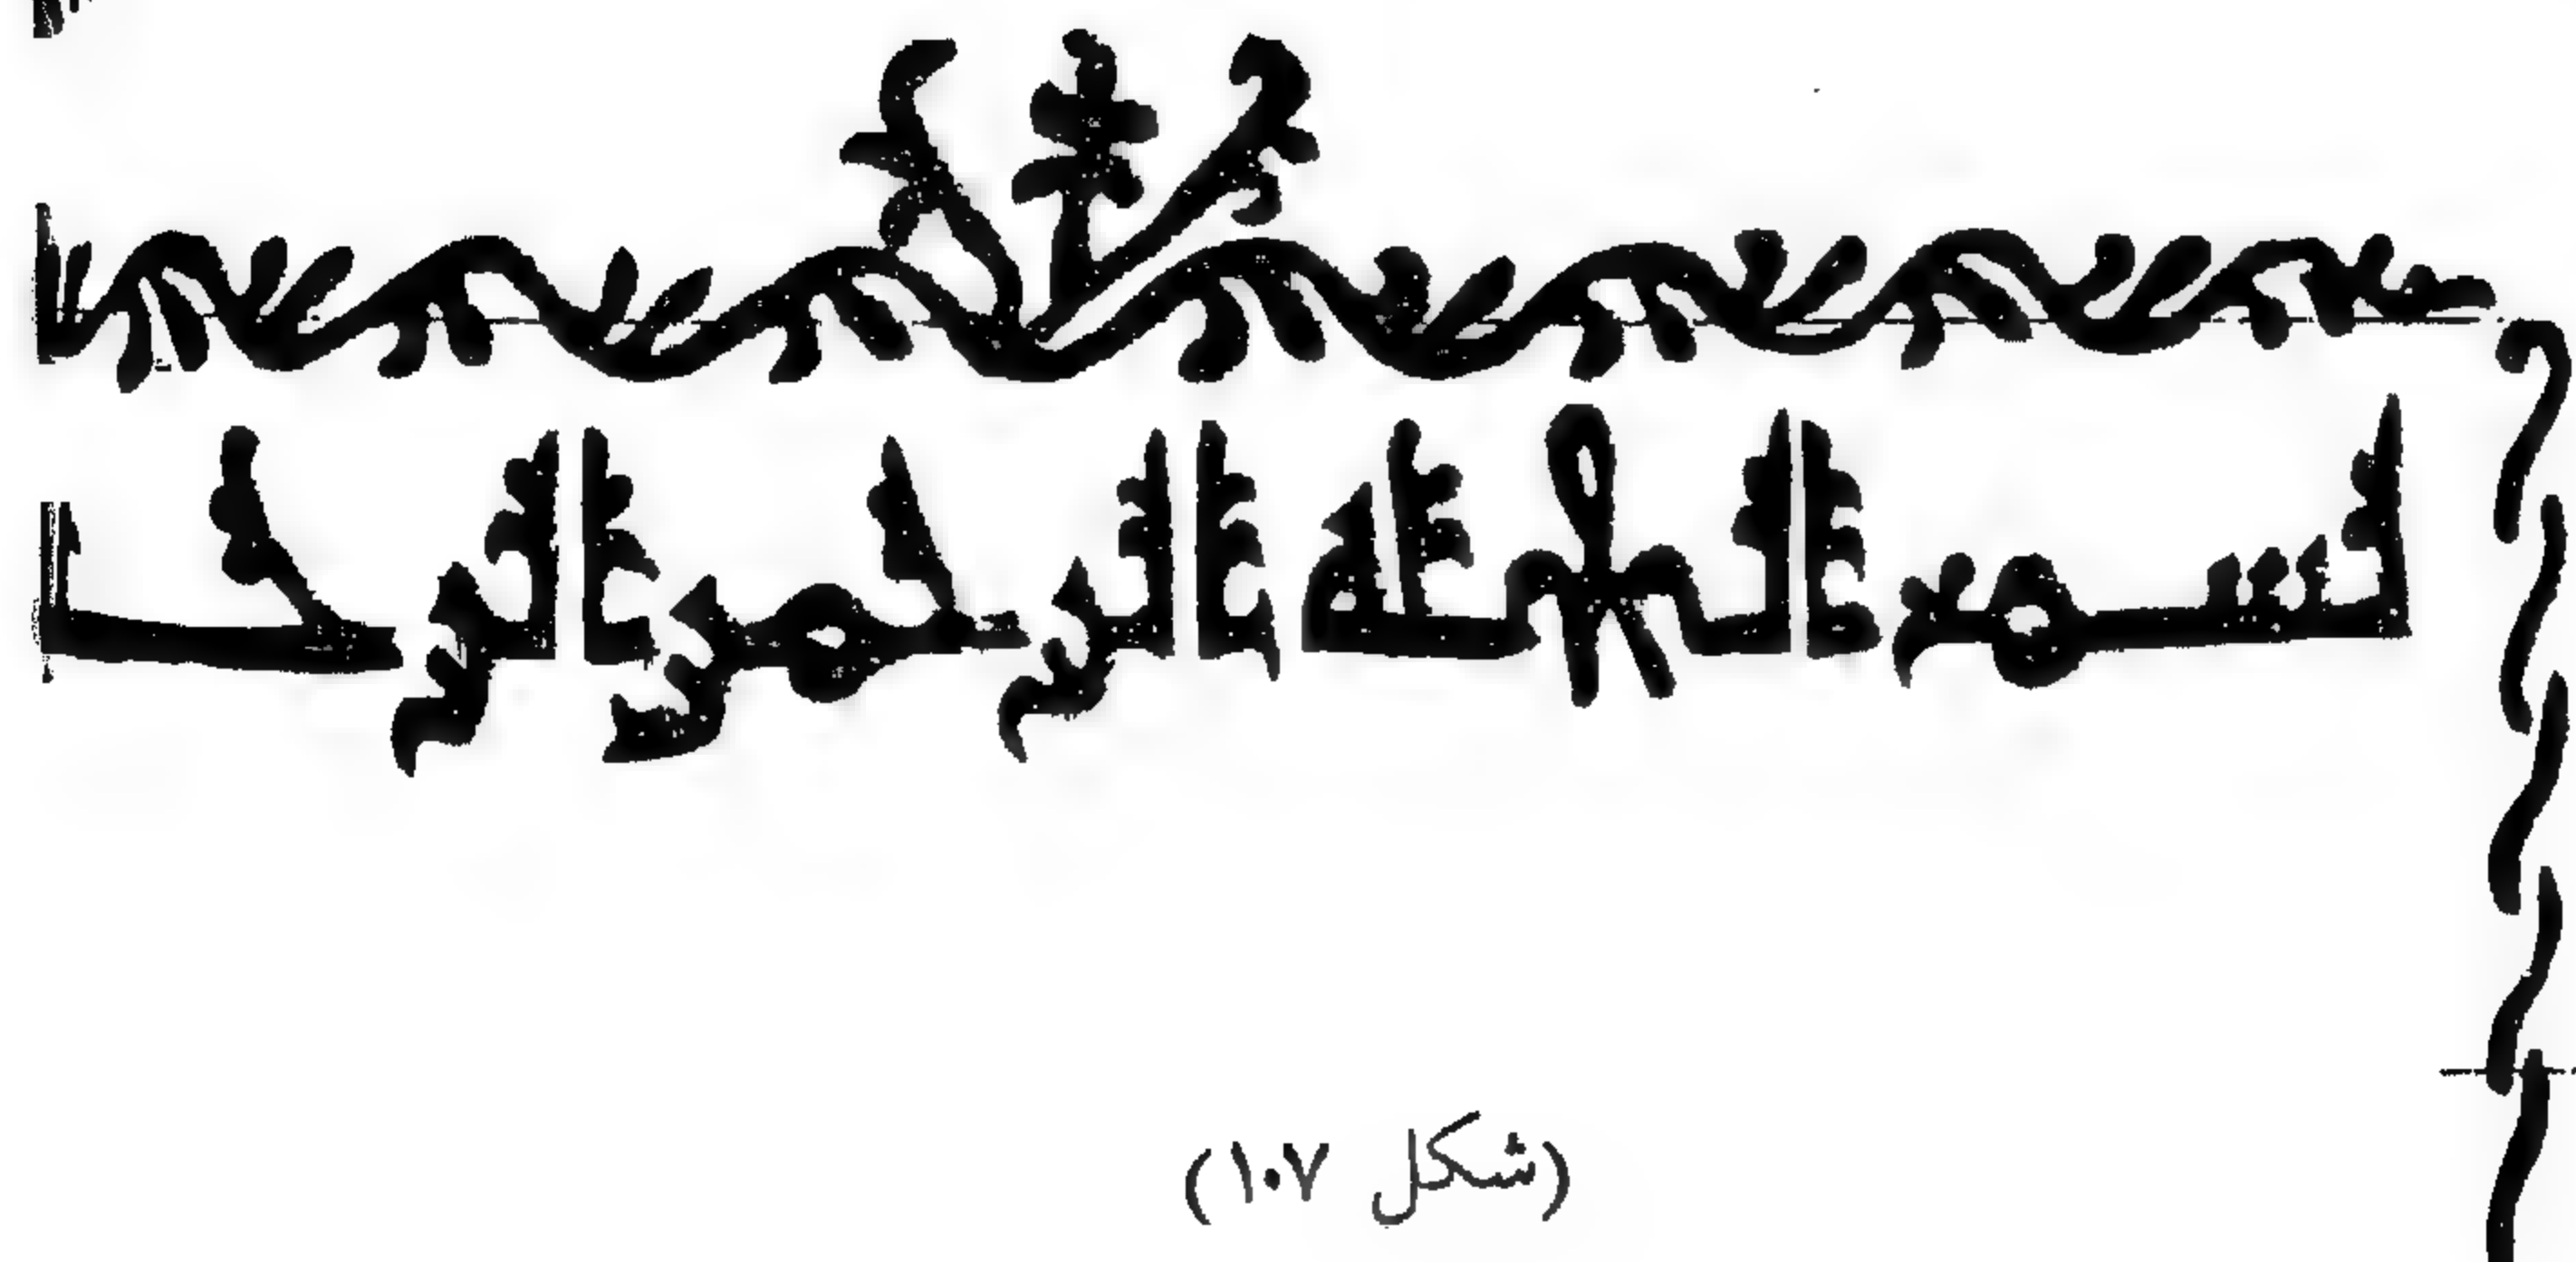 بسم الله الرحمن الرحيـ
(شكل ١٠٧)